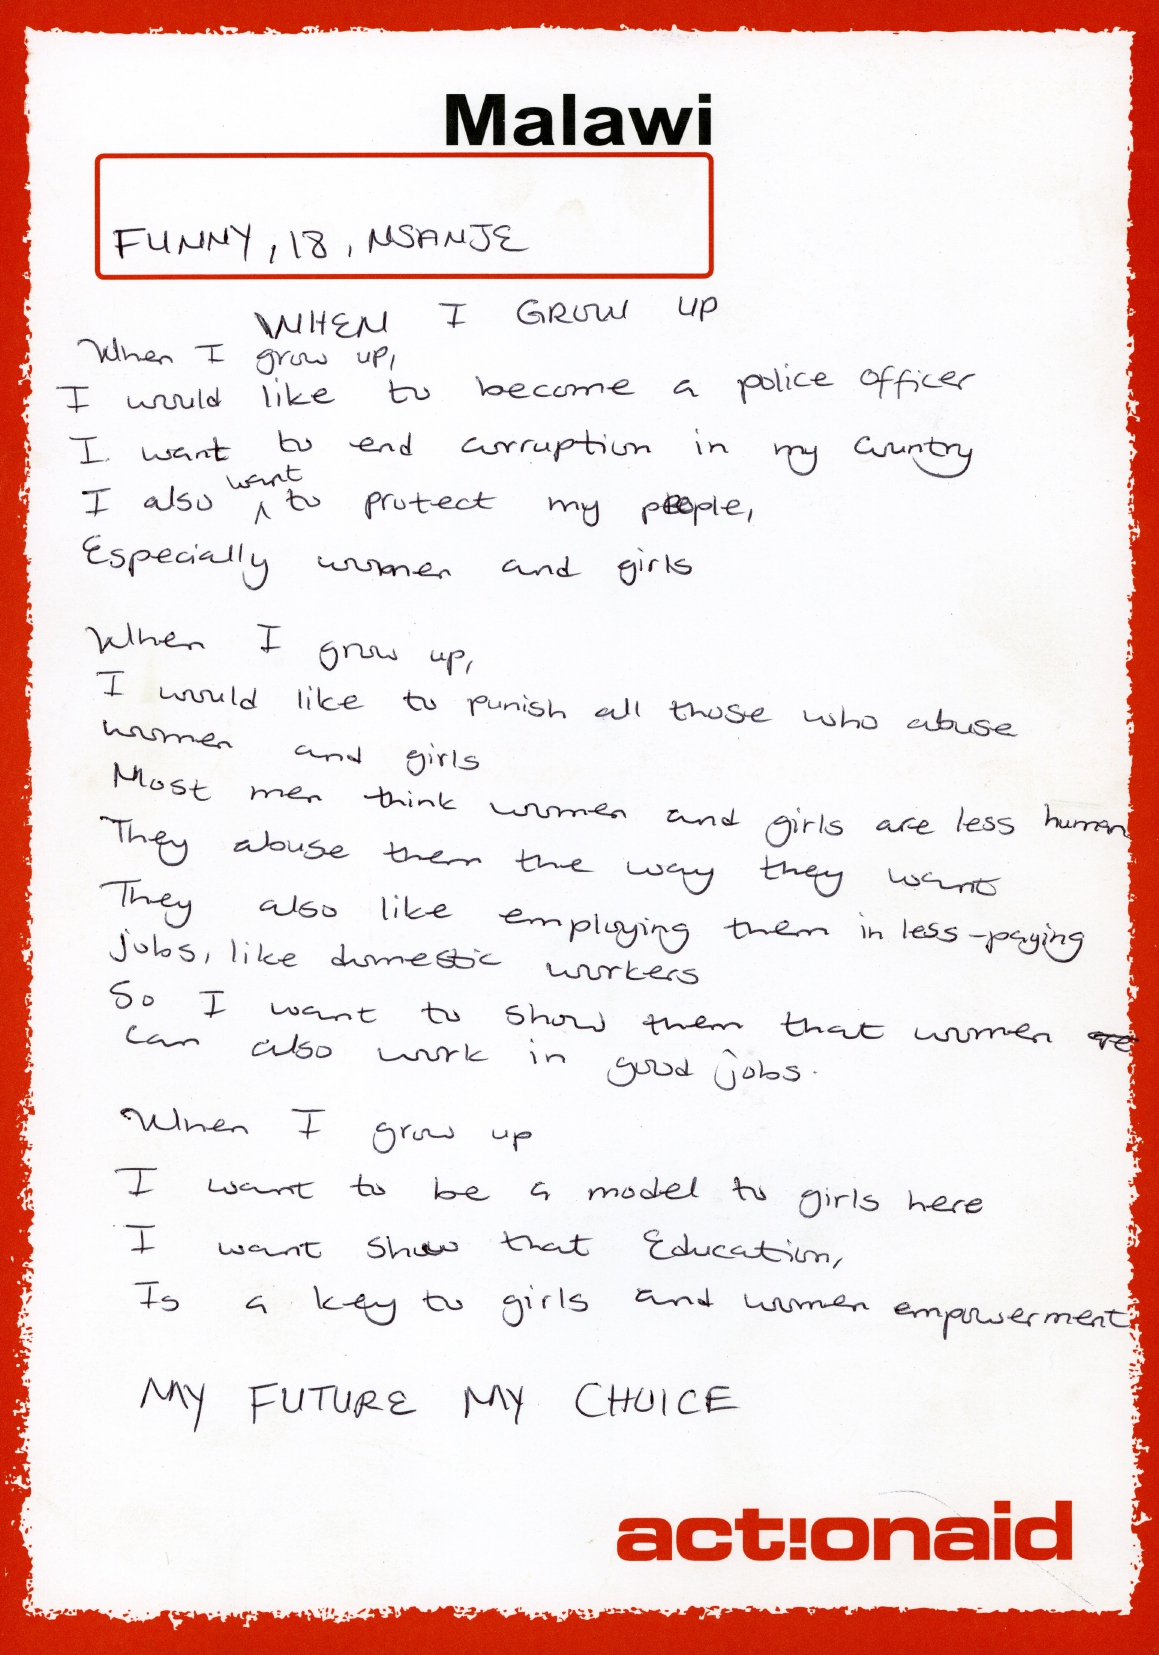 Malawi
FUNNY, 18, NSANJE
WHEN I GROW UP
When I grow up,
I would like to become a police officer
I want to end corruption in my country
I also want to protect my people,
Especially women and girls
When I grow up,
I would like to punish all those who abuse
women and girls
Most men think women and girls are less human
They abuse them the way they want
They also like employing them in less-paying
jobs, like domestic workers
So I want to show them that women
can also work in good jobs.
When I grow up
I want to be a model to girls here
I want show that Education,
Is a key to girls and women empowerment
MY FUTURE MY CHOICE
act!onaid